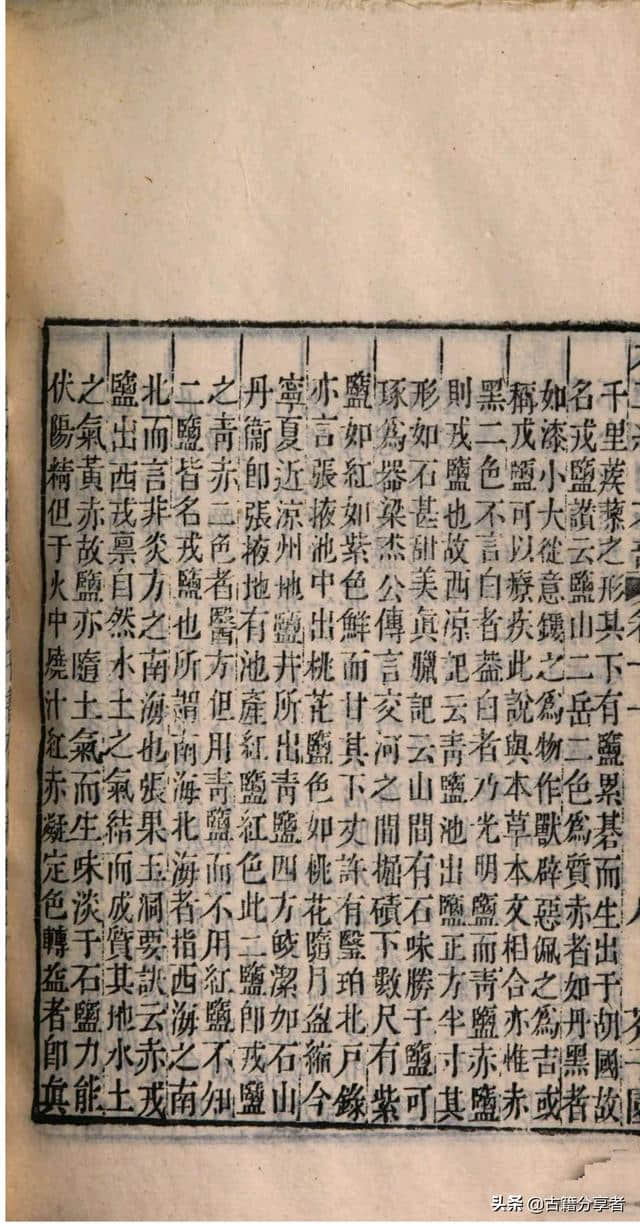 千里蒺蔾之形其下有鹽累碁而生出于胡國故
名戎鹽讚云鹽山二岳二色為質赤者如丹黑者
如漆小大從意鐫之為物作獸辟惡佩之為吉或
稱戎鹽可以療疾此說與本草本文相合亦惟赤
黑二色不言白者葢白者乃光明鹽而青鹽赤鹽
則戎鹽也故西涼記云青鹽池出鹽正方半寸其
形如石甚甜美眞臘記云山間有石味勝于鹽可
琢爲器梁杰公傳言交河之間掘磧下數尺有紫
鹽如紅如紫色鮮而甘其下丈許有瑿珀北戶錄
亦言張掖池中出桃花鹽色如桃花隨月盈縮今
寧夏近涼州地鹽井所出青鹽四方皎潔如石山
丹衞卽張掖地有池產紅鹽紅色此二鹽卽戎鹽
之青赤二色者醫方但用青鹽而不用紅鹽不知
二鹽皆名戎鹽也所謂南海北海者指西海之南
北而言非炎方之南海也張果玉洞要訣云赤戎
鹽出西戎禀自然水土之氣結而成質其地水土
之氣黃赤故鹽亦隨土氣而生味淡于石鹽力能
伏陽精但于火中燒汁紅赤凝定色轉益者卽眞
头条 @古籍分享者